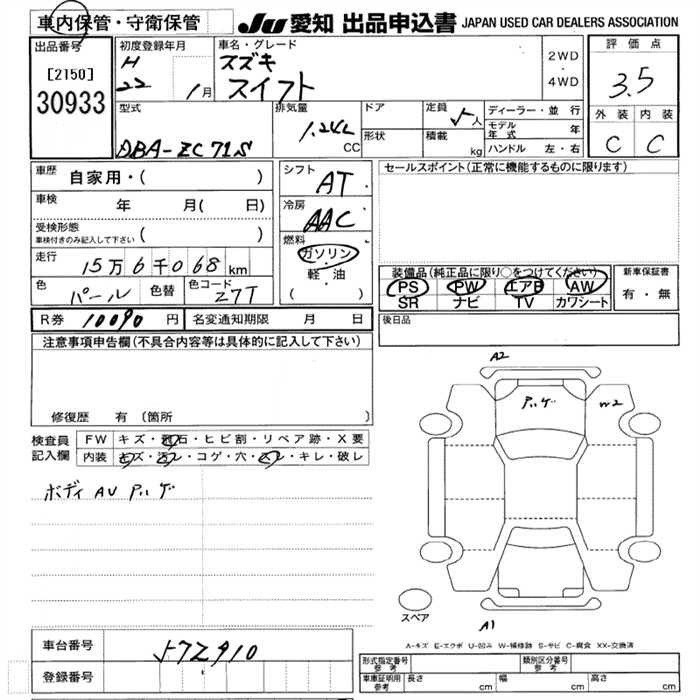 車内保管・守衛保管 JU 愛知 出品申込書 JAPAN USED CAR DEALERS ASSOCIATION
出品番号
[2150]
30933
初度登録年月
H
22 1月
車名・グレード
スズキ
スイフト
2WD
・
4WD
評価点
3.5
外装 内装
C C
型式
DBA-ZC71S
排気量
1.24L
CC
ドア
形状
定員
5人
積載
kg
ディーラー・並行
モデル年式 年
ハンドル 左・右
車歴
自家用・( )
車検
年 月( 日)
受検形態
車検付きのみ記入して下さい ( )
走行
15万6千068km
色
パール
色替
色コード
Z7T
シフト
AT
冷房
AAC
燃料
ガソリン
・
軽・油
( )
セールスポイント(正常に機能するものに限ります)
装備品(純正品に限り○をつけてください)
PS PW エアB AW
SR ナビ TV カワシート
新車保証書
有・無
後日品
R券 10090 円 名変通知期限 月 日
注意事項申告欄(不具合内容等は具体的に記入して下さい)
修復歴 有 (箇所 )
検査員
記入欄
FW キズ・飛石・ヒビ割・リペア跡・X要
内装 キズ・汚レ・コゲ・穴・スレ・キレ・破レ
ボディ AU アハゲ
A2
アハゲ
W2
スペア
A1
A-キズ E-エクボ U-凹み W-補修跡 S-サビ C-腐食 XX-交換済
車台番号
571910
登録番号
形式指定番号
参考
類別区分番号
参考
車庫証明用
参考
長さ cm 幅 cm 高さ cm